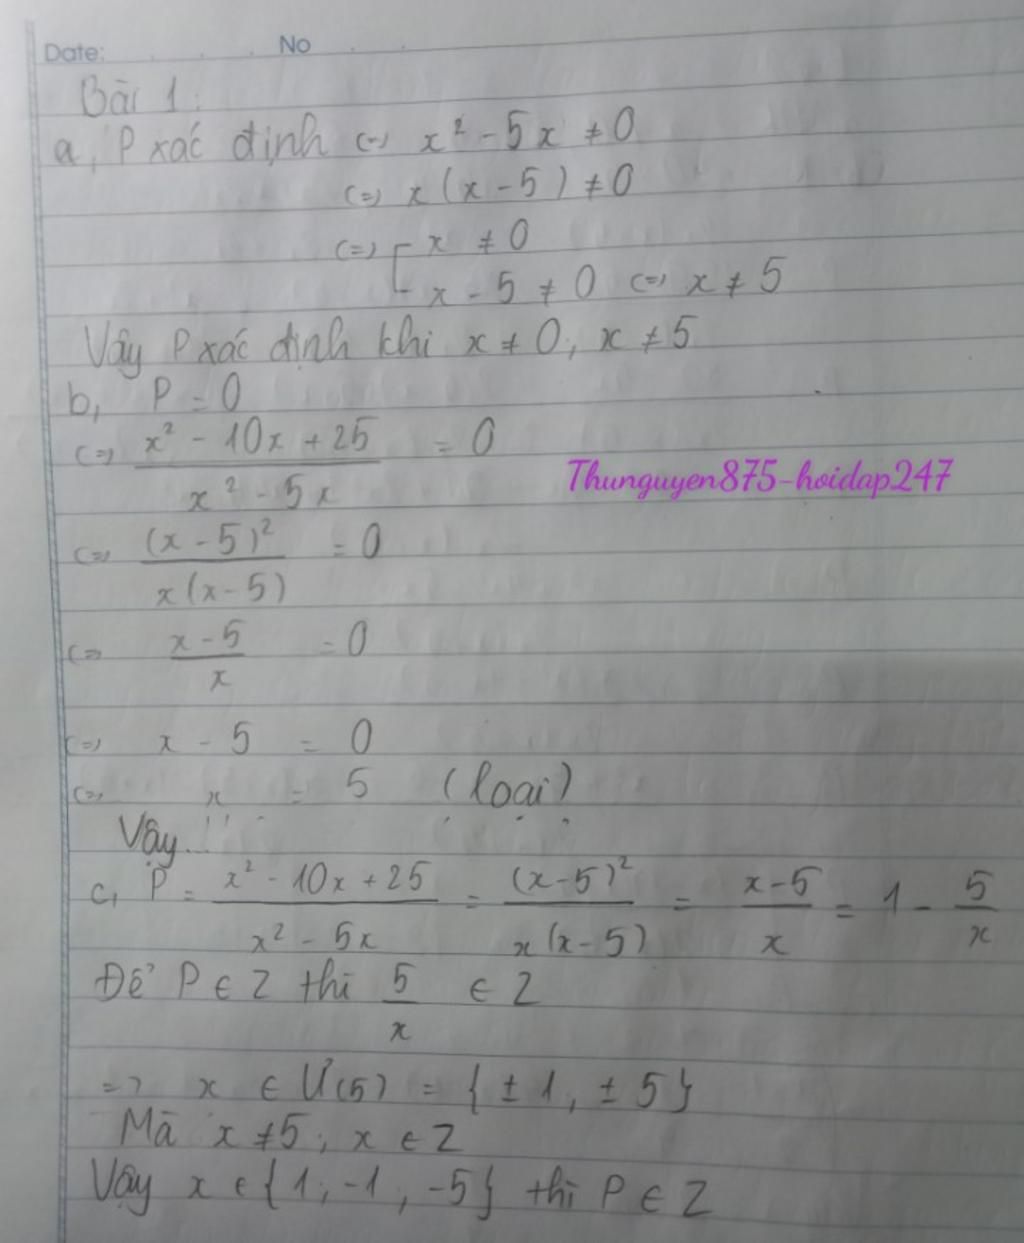 Date: No
Bài 1:
a, P xác định (=) x² - 5x ≠ 0
(=) x(x - 5) ≠ 0
(=) [ x ≠ 0
x - 5 ≠ 0 (=) x ≠ 5
Vậy P xác định khi x ≠ 0, x ≠ 5
b, P = 0
(=) (x² - 10x + 25)/(x² - 5x) = 0
Thunguyen875-hoidap247
(=) (x - 5)²/(x(x - 5)) = 0
(=) (x - 5)/x = 0
(=) x - 5 = 0
(=) x = 5 (loại)
Vậy...
c, P = (x² - 10x + 25)/(x² - 5x) = (x - 5)²/(x(x - 5)) = (x - 5)/x = 1 - 5/x
Để P ∈ Z thì 5/x ∈ Z
=> x ∈ Ư(5) = {± 1, ± 5}
Mà x ≠ 5, x ∈ Z
Vậy x ∈ {1, -1, -5} thì P ∈ Z